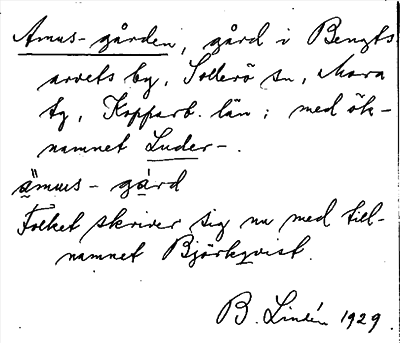 Amus-gården, gård i Bengts
arvets by, Sollerö sn, Mora
tg, Kopparb. län; med ök-
namnet Luder-.
ämus- gård
Folket skriver sig nu med till-
namnet Björkqvist.
B. Lindén 1929.